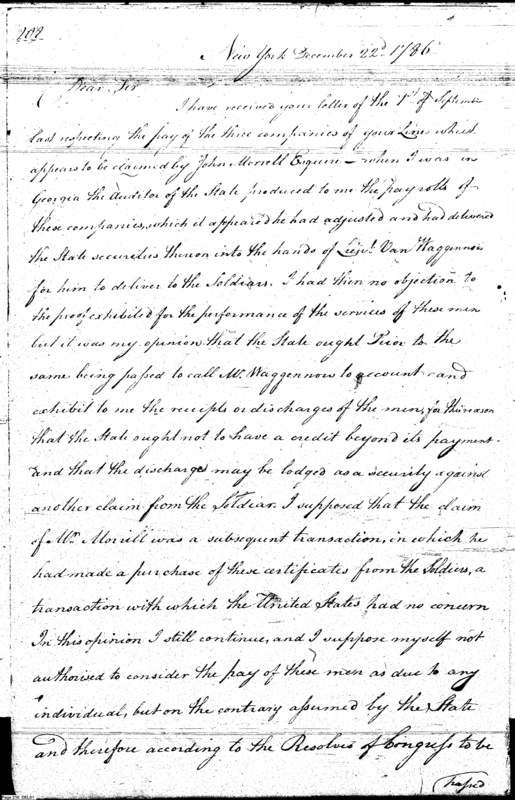 202
New York December 22d. 1786
Dear Sir
I have received your letter of the 1st of September
last respecting the pay of the three companies of your Line which
appears to be claimed by John Morrell Esquire – when I was in
Georgia the Auditor of the State produced to me the pay rolls of
these companies, which it appeared he had adjusted and had delivered
the State securities thereon into the hands of Lieut. Van Waggennor
for him to deliver to the Soldiars. I had then no objection to
the proof exhibited for the performance of the services of these men
but it was my opinion that the State ought Prior to the
same being passed to call Mr. Waggennor to account and
exhibit to me the receipts or discharges of the men, for this reason
that the State ought not to have a credit beyond its payment
and that the discharges may be lodged as a security against
another claim from the Soldiar. I supposed that the claim
of Mr. Morrill was a subsequent transaction, in which he
had made a purchase of these certificates from the Soldiers, a
transaction with which the United States had no concern
In this opinion I still continue, and I suppose myself not
authorised to consider the pay of these men as due to any
individual, but on the contrary assumed by the State
and therefore according to the Resolves of Congress to be
Passed